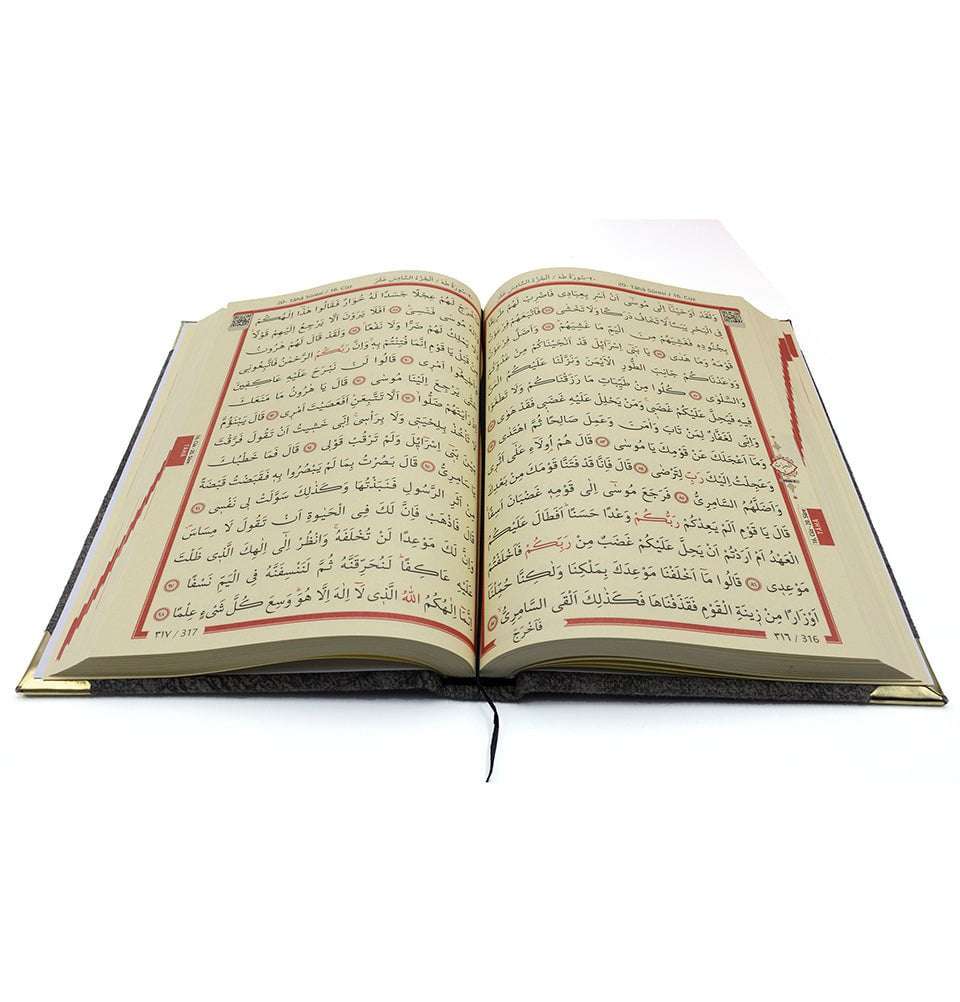 ٢٠-سُورَةُ طٰهٰ / اَلْجُزْءُ السَّادِسَ عَشَرَ
20- Tâhâ Sûresi / 16. Cüz
وَلَقَدْ اَوْحَيْنَٓا اِلٰى مُوسٰٓى اَنْ اَسْرِ بِعِبَادٖى فَاضْرِبْ لَهُمْ
فِى الْبَحْرِ يَبَسًا لَا تَخَافُ دَرَكًا وَلَا تَخْشٰى ﴿٧٧﴾ فَاَتْبَعَهُمْ
بِجُنُودِهٖ فَغَشِيَهُمْ مِنَ الْيَمِّ مَا غَشِيَهُمْ ﴿٧٨﴾ وَاَضَلَّ
قَوْمَهُ وَمَا هَدٰى ﴿٧٩﴾ يَا بَنٖٓى اِسْرَٓائٖلَ قَدْ اَنْجَيْنَاكُمْ مِنْ
وَوٰعَدْنَاكُمْ جَانِبَ الطُّورِ الْاَيْمَنَ وَنَزَّلْنَا عَلَيْكُمُ
وَالسَّلْوٰى ﴿٨٠﴾ كُلُوا مِنْ طَيِّبَاتِ مَا رَزَقْنَاكُمْ وَلَا
فٖيهِ فَيَحِلَّ عَلَيْكُمْ غَضَبٖى وَمَنْ يَحْلِلْ عَلَيْهِ غَضَبٖى فَقَدْ هَوٰى
وَاِنّٖى لَغَفَّارٌ لِمَنْ تَابَ وَاٰمَنَ وَعَمِلَ صَالِحًا ثُمَّ اهْتَدٰى
وَمَٓا اَعْجَلَكَ عَنْ قَوْمِكَ يَا مُوسٰى ﴿٨٣﴾ قَالَ هُمْ اُو۬لَٓاءِ عَلٰٓى اَثَرٖى
وَعَجِلْتُ اِلَيْكَ رَبِّ لِتَرْضٰى ﴿٨٤﴾ قَالَ فَاِنَّا قَدْ فَتَنَّا قَوْمَكَ مِنْ بَعْدِكَ
وَاَضَلَّهُمُ السَّامِرِىُّ ﴿٨٥﴾ فَرَجَعَ مُوسٰٓى اِلٰى قَوْمِهٖ غَضْبَانَ اَسِفًا
قَالَ يَا قَوْمِ اَلَمْ يَعِدْكُمْ رَبُّكُمْ وَعْدًا حَسَنًا اَفَطَالَ عَلَيْكُمُ
الْعَهْدُ اَمْ اَرَدْتُمْ اَنْ يَحِلَّ عَلَيْكُمْ غَضَبٌ مِنْ رَبِّكُمْ فَاَخْلَفْتُمْ
مَوْعِدٖى ﴿٨٦﴾ قَالُوا مَٓا اَخْلَفْنَا مَوْعِدَكَ بِمَلْكِنَا وَلٰكِنَّا حُمِّلْنَٓا
اَوْزَارًا مِنْ زٖينَةِ الْقَوْمِ فَقَذَفْنَاهَا فَكَذٰلِكَ اَلْقَى السَّامِرِىُّ ﴿٨٧﴾
فَاَخْرَجَ
٣١٦ / 316
TÂHÂ
16. Cüz - 20. Sûre
٢٠-سُورَةُ طٰهٰ / اَلْجُزْءُ السَّادِسَ عَشَرَ
20- Tâhâ Sûresi / 16. Cüz
لَهُمْ عِجْلًا جَسَدًا لَهُ خُوَارٌ فَقَالُوا هٰذَٓا اِلٰهُكُمْ
مُوسٰى فَنَسِىَ ﴿٨٨﴾ اَفَلَا يَرَوْنَ اَلَّا يَرْجِعُ اِلَيْهِمْ قَوْلًا
لَهُمْ ضَرًّا وَلَا نَفْعًا ﴿٨٩﴾ وَلَقَدْ قَالَ لَهُمْ هٰرُونُ
قَبْلُ يَا قَوْمِ اِنَّمَا فُتِنْتُمْ بِهٖ وَاِنَّ رَبَّكُمُ الرَّحْمٰنُ فَاتَّبِعُونٖى
وَاَطٖيعُٓوا اَمْرٖى ﴿٩٠﴾ قَالُوا لَنْ نَبْرَحَ عَلَيْهِ عَاكِفٖينَ
حَتّٰى يَرْجِعَ اِلَيْنَا مُوسٰى ﴿٩١﴾ قَالَ يَا هٰرُونُ مَا مَنَعَكَ
رَاَيْتَهُمْ ضَلُّوا ﴿٩٢﴾ اَلَّا تَتَّبِعَنِ اَفَعَصَيْتَ اَمْرٖى ﴿٩٣﴾ قَالَ يَبْنَؤُ۬مَّ
لَا تَأْخُذْ بِلِحْيَتٖى وَلَا بِرَأْسٖى اِنّٖى خَشٖيتُ اَنْ تَقُولَ فَرَّقْتَ
بَيْنَ بَنٖٓى اِسْرَٓائٖلَ وَلَمْ تَرْقُبْ قَوْلٖى ﴿٩٤﴾ قَالَ فَمَا خَطْبُكَ
يَا سَامِرِىُّ ﴿٩٥﴾ قَالَ بَصُرْتُ بِمَا لَمْ يَبْصُرُوا بِهٖ فَقَبَضْتُ قَبْضَةً
مِنْ اَثَرِ الرَّسُولِ فَنَبَذْتُهَا وَكَذٰلِكَ سَوَّلَتْ لٖى نَفْسٖى ﴿٩٦﴾
قَالَ فَاذْهَبْ فَاِنَّ لَكَ فِى الْحَيٰوةِ اَنْ تَقُولَ لَا مِسَاسَ
وَاِنَّ لَكَ مَوْعِدًا لَنْ تُخْلَفَهُ وَانْظُرْ اِلٰٓى اِلٰهِكَ الَّذٖى ظَلْتَ
عَلَيْهِ عَاكِفًا لَنُحَرِّقَنَّهُ ثُمَّ لَنَنْسِفَنَّهُ فِى الْيَمِّ نَسْفًا ﴿٩٧﴾
اِنَّمَٓا اِلٰهُكُمُ اللّٰهُ الَّذٖى لَٓا اِلٰهَ اِلَّا هُوَ وَسِعَ كُلَّ شَىْءٍ عِلْمًا ﴿٩٨﴾
٣١٧ / 317
TÂHÂ